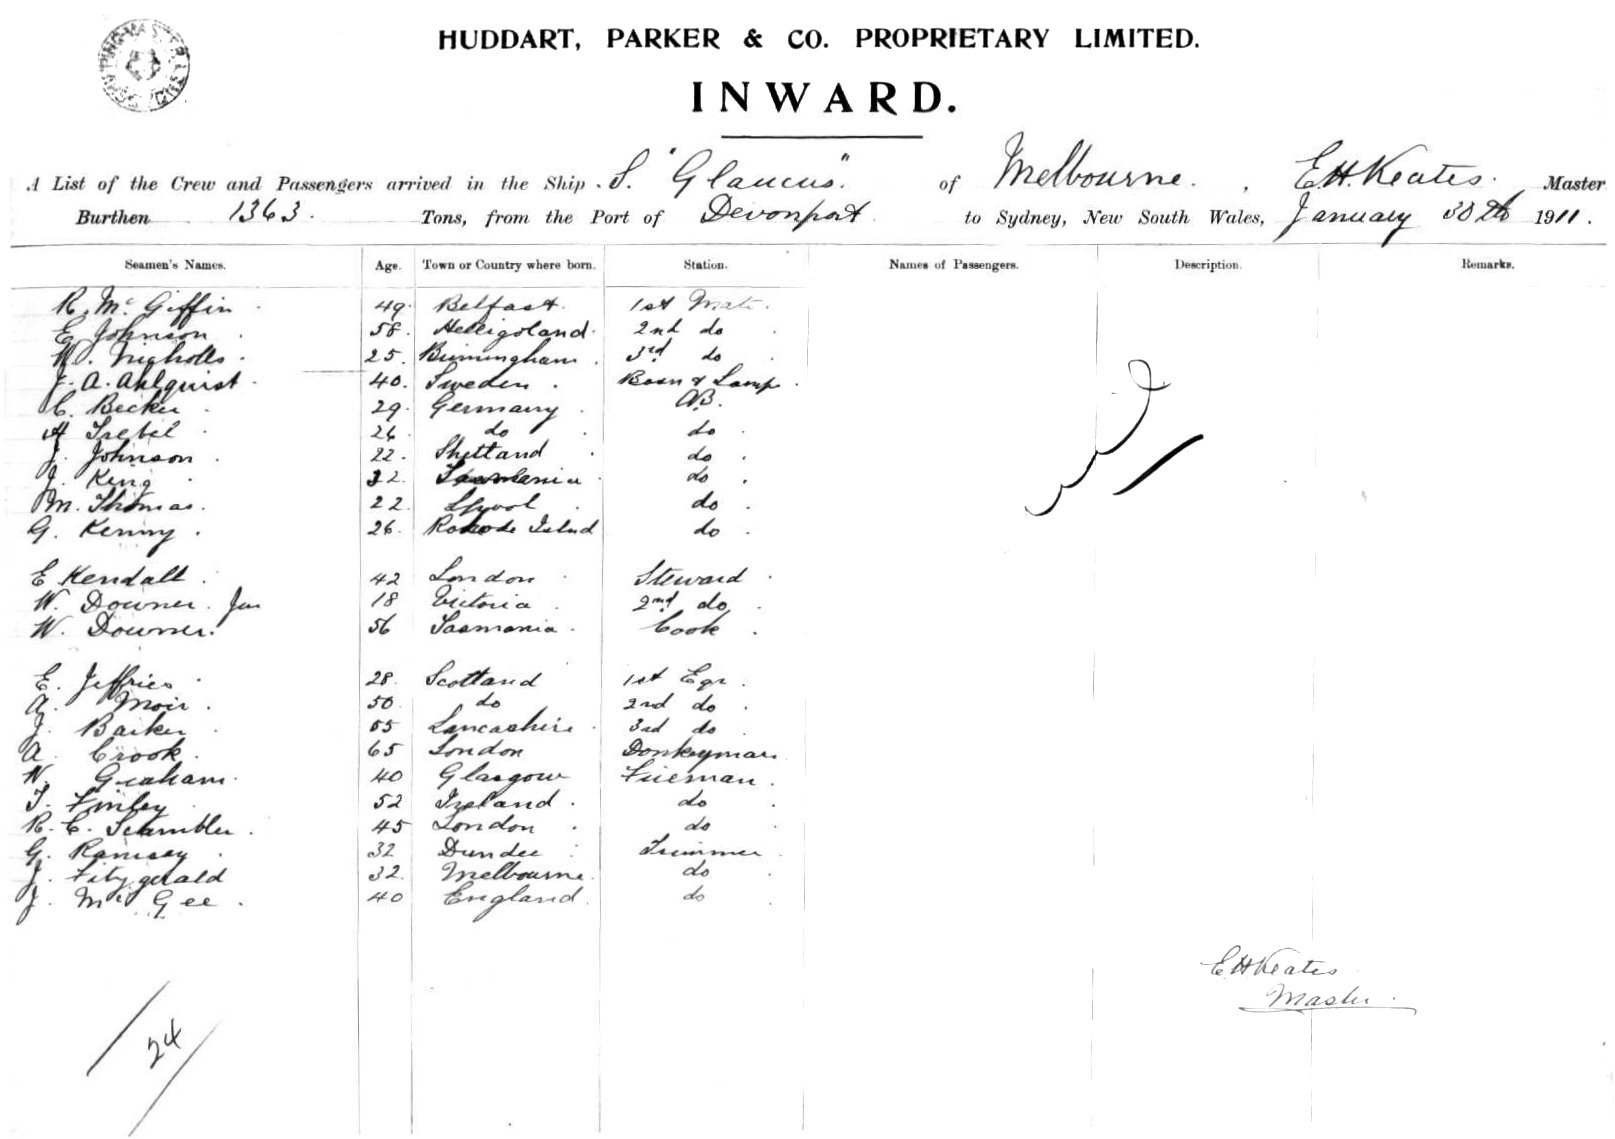 HUDDART, PARKER & CO. PROPRIETARY LIMITED.
INWARD.
A List of the Crew and Passengers arrived in the Ship S. "Glaucus" of Melbourne. , E.H. Keates. Master
Burthen 1363. Tons, from the Port of Devonport to Sydney, New South Wales, January 30th 1911.
Seamen's Names. Age. Town or Country where born. Station. Names of Passengers. Description. Remarks.
R. Mc Giffin 49. Belfast. 1st Mate.
E. Johnson 58. Heligoland. 2nd do
W. Nicholls. 25. Birmingham. 3rd do
J. A. Ahlquist. 40. Sweden. Bosn & Lamp.
C. Becker 29. Germany. AB.
A Trebil 26. do do
J. Johnson 22. Shetland do
J. King 32. Tasmania do
M. Thomas. 22. Lpool do
G. Kenny 26. Rhode Island do
E Kendall 42 London Steward
W. Downer. Jun 18 Victoria 2nd do
W. Downer. 56 Tasmania. Cook
E. Jeffries 28. Scotland 1st Egr.
A. Moir 50. do 2nd do
J. Barker 55 Lancashire 3rd do
A. Crook 65 London Donkeyman
W. Graham. 40 Glasgow Fireman.
T. Finley 52 Ireland. do
R. C. Scambler 45 London do
G. Ramsay 32 Dundee Trimmer
J. Fitzgerald 32. Melbourne. do
J. Mc Gee 40 England. do
nil
E H Keates
Master.
24